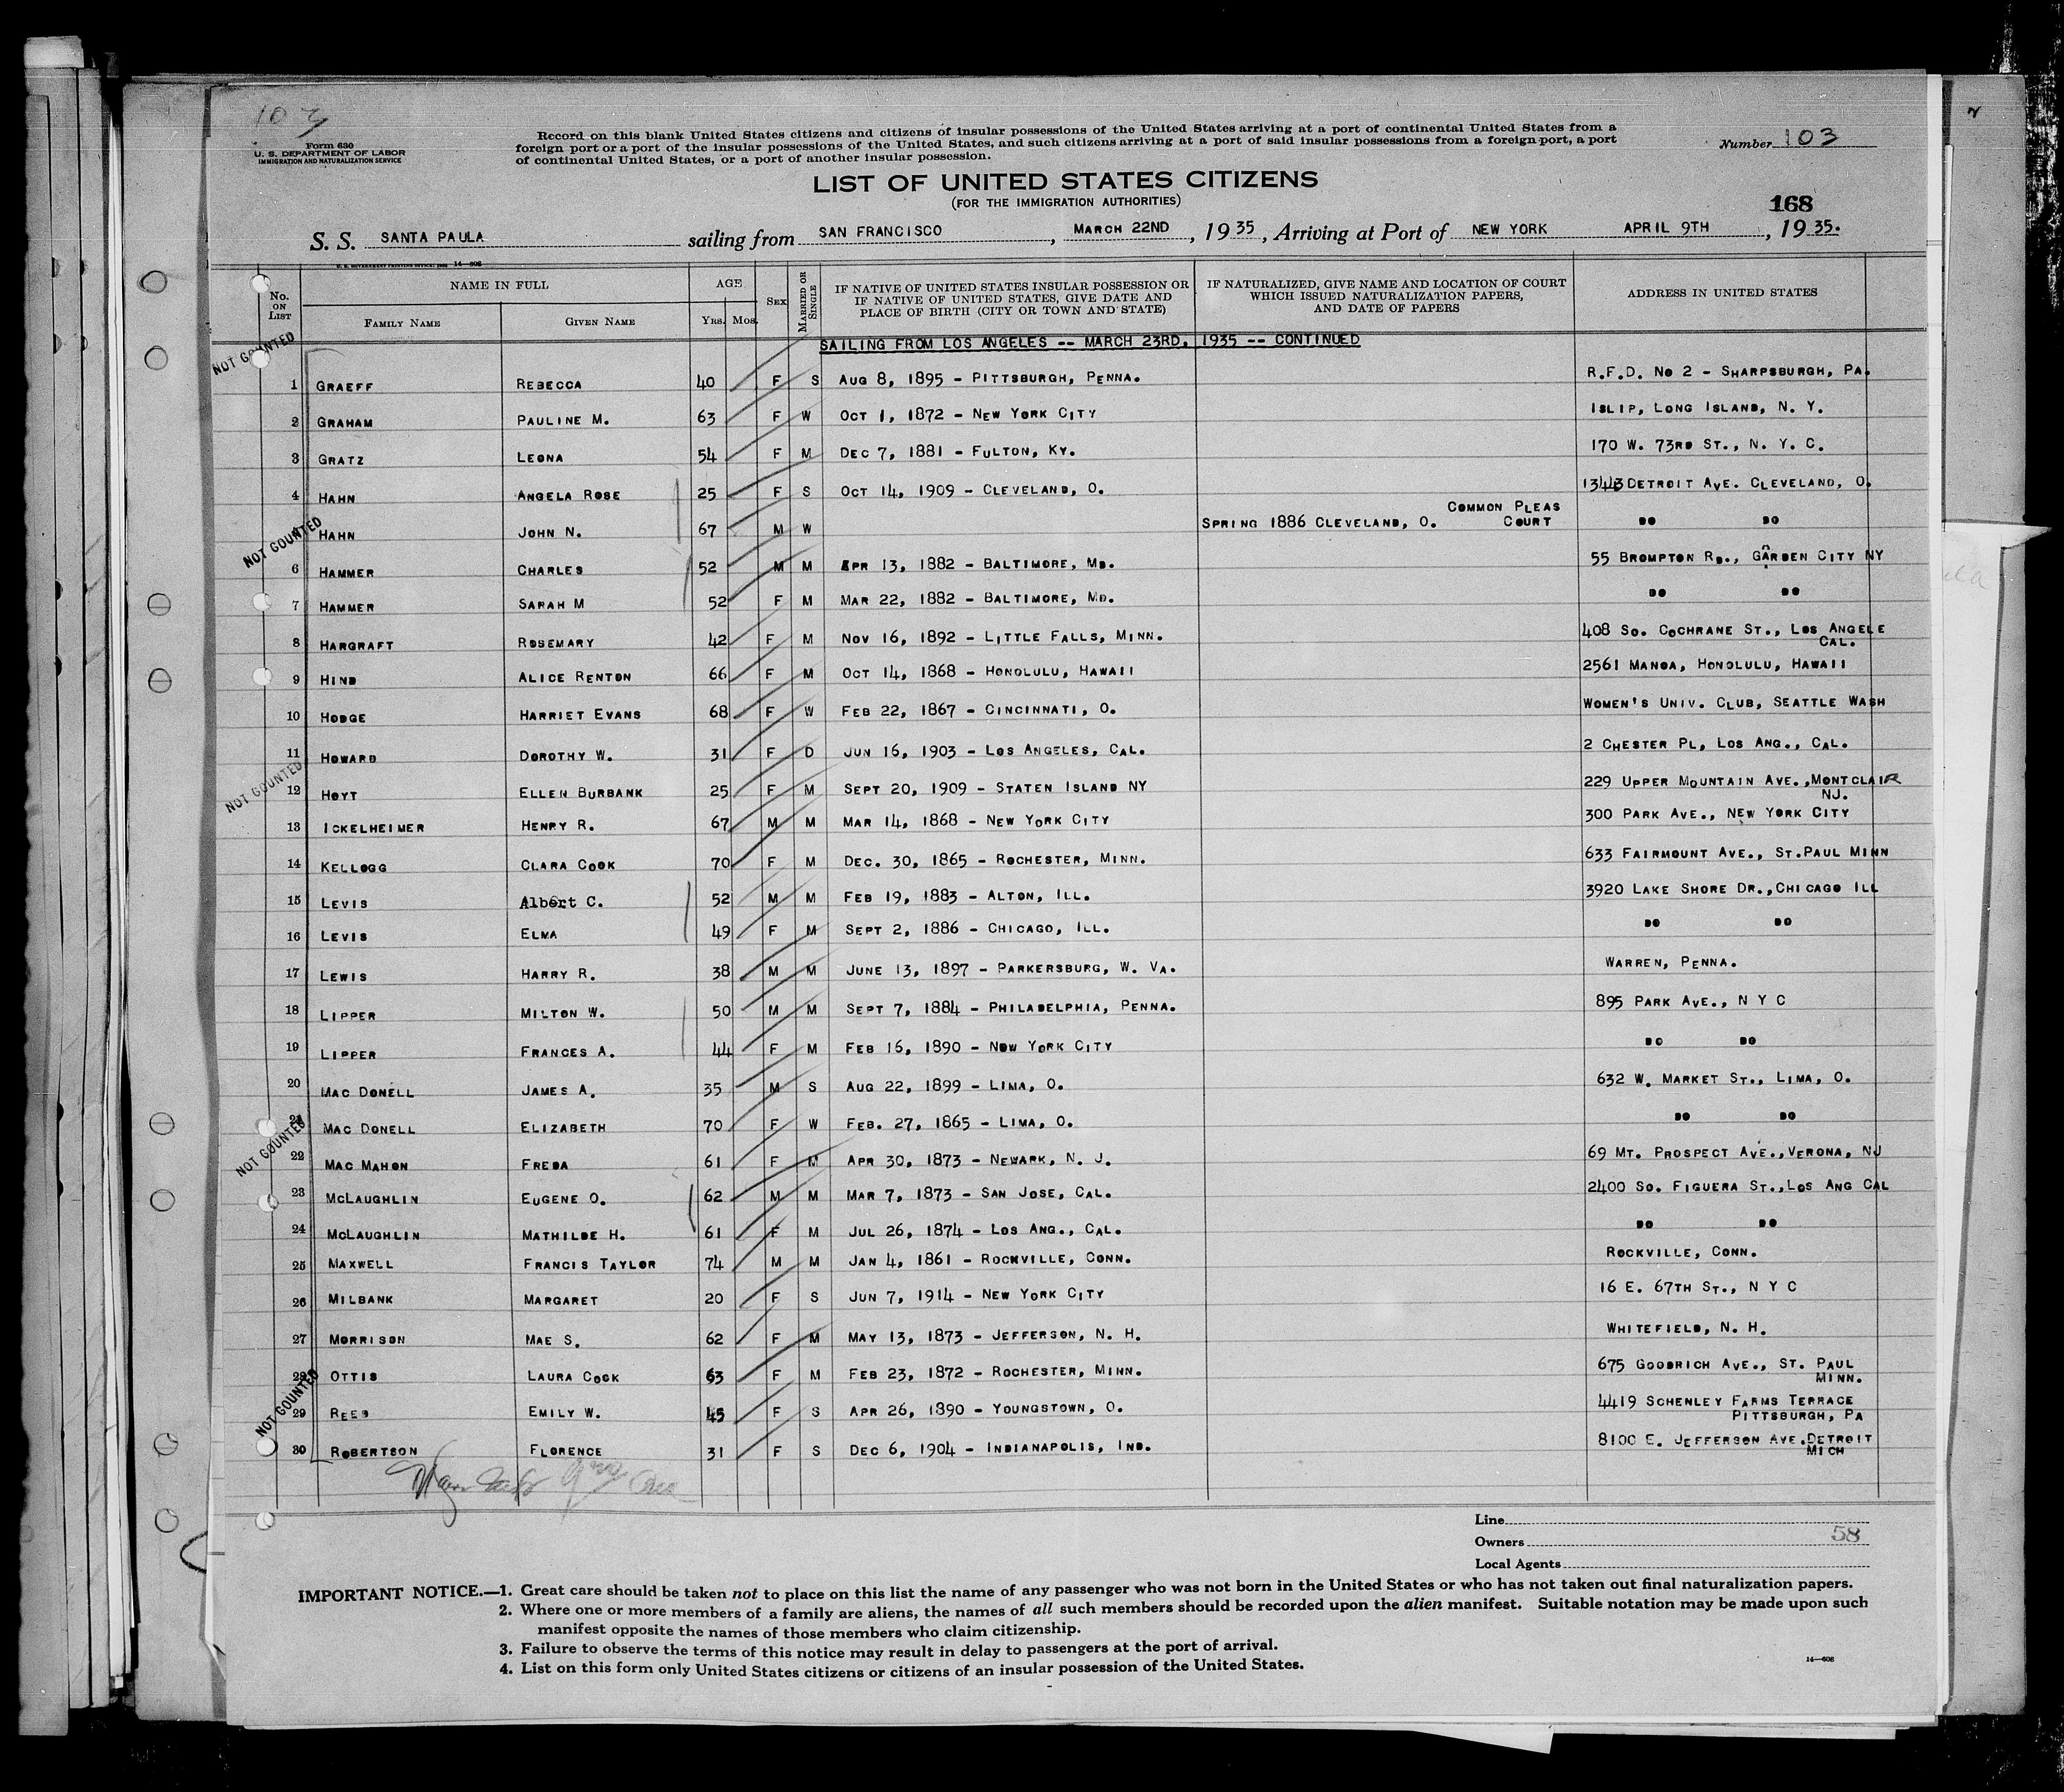 103
Form 630
U. S. DEPARTMENT OF LABOR
IMMIGRATION AND NATURALIZATION SERVICE
Record on this blank United States citizens and citizens of insular possessions of the United States arriving at a port of continental United States from a
foreign port or a port of the insular possessions of the United States, and such citizens arriving at a port of said insular possessions from a foreign port, a port
of continental United States, or a port of another insular possession.
Number 103
LIST OF UNITED STATES CITIZENS
(FOR THE IMMIGRATION AUTHORITIES)
168
S. S. SANTA PAULA sailing from SAN FRANCISCO, MARCH 22ND, 1935, Arriving at Port of NEW YORK APRIL 9TH, 1935.
14-608
No. ON LIST NAME IN FULL FAMILY NAME GIVEN NAME AGE YRS. MOS. SEX MARRIED OR SINGLE IF NATIVE OF UNITED STATES INSULAR POSSESSION OR IF NATIVE OF UNITED STATES, GIVE DATE AND PLACE OF BIRTH (CITY OR TOWN AND STATE) IF NATURALIZED, GIVE NAME AND LOCATION OF COURT WHICH ISSUED NATURALIZATION PAPERS, AND DATE OF PAPERS ADDRESS IN UNITED STATES
SAILING FROM LOS ANGELES -- MARCH 23RD, 1935 -- CONTINUED
NOT COUNTED
1 GRAEFF REBECCA 40 F S AUG 8, 1895 - PITTSBURGH, PENNA. R.F.D. NO 2 - SHARPSBURGH, PA.
2 GRAHAM PAULINE M. 63 F W OCT 1, 1872 - NEW YORK CITY ISLIP, LONG ISLAND, N. Y.
3 GRATZ LEONA 54 F M DEC 7, 1881 - FULTON, KY. 170 W. 73RD ST., N. Y. C.
4 HAHN ANGELA ROSE 25 F S OCT 14, 1909 - CLEVELAND, O. 13443 DETROIT AVE. CLEVELAND, O.
NOT COUNTED
HAHN JOHN N. 67 M W SPRING 1886 CLEVELAND, O. COMMON PLEAS COURT DO DO
6 HAMMER CHARLES 52 M M APR 13, 1882 - BALTIMORE, MD. 55 BROMPTON RD., GARDEN CITY NY
7 HAMMER SARAH M 52 F M MAR 22, 1882 - BALTIMORE, MD. DO DO
8 HARGRAFT ROSEMARY 42 F M NOV 16, 1892 - LITTLE FALLS, MINN. 408 SO. COCHRANE ST., LOS ANGELE CAL.
9 HIND ALICE RENTON 66 F M OCT 14, 1868 - HONOLULU, HAWAII 2561 MANOA, HONOLULU, HAWAII
10 HODGE HARRIET EVANS 68 F W FEB 22, 1867 - CINCINNATI, O. WOMEN'S UNIV. CLUB, SEATTLE WASH
11 HOWARD DOROTHY W. 31 F D JUN 16, 1903 - LOS ANGELES, CAL. 2 CHESTER PL, LOS ANG., CAL.
NOT COUNTED
12 HOYT ELLEN BURBANK 25 F M SEPT 20, 1909 - STATEN ISLAND NY 229 UPPER MOUNTAIN AVE., MONTCLAIR NJ.
13 ICKELHEIMER HENRY R. 67 M M MAR 14, 1868 - NEW YORK CITY 300 PARK AVE., NEW YORK CITY
14 KELLOGG CLARA COOK 70 F M DEC. 30, 1865 - ROCHESTER, MINN. 633 FAIRMOUNT AVE., ST.PAUL MINN
15 LEVIS Albert C. 52 M M FEB 19, 1883 - ALTON, ILL. 3920 LAKE SHORE DR., CHICAGO ILL
16 LEVIS ELMA 49 F M SEPT 2, 1886 - CHICAGO, ILL. DO DO
17 LEWIS HARRY R. 38 M M JUNE 13, 1897 - PARKERSBURG, W. VA. WARREN, PENNA.
18 LIPPER MILTON W. 50 M M SEPT 7, 1884 - PHILADELPHIA, PENNA. 895 PARK AVE., N Y C
19 LIPPER FRANCES A. 44 F M FEB 16, 1890 - NEW YORK CITY DO DO
20 MAC DONELL JAMES A. 35 M S AUG 22, 1899 - LIMA, O. 632 W. MARKET ST., LIMA, O.
21 MAC DONELL ELIZABETH 70 F W FEB. 27, 1865 - LIMA, O. DO DO
NOT COUNTED
22 MAC MAHON FREDA 61 F M APR 30, 1873 - NEWARK, N. J. 69 MT. PROSPECT AVE., VERONA, NJ
23 MCLAUGHLIN EUGENE O. 62 M M MAR 7, 1873 - SAN JOSE, CAL. 2400 SO. FIGUERA ST., LOS ANG CAL
24 MCLAUGHLIN MATHILDE H. 61 F M JUL 26, 1874 - LOS ANG., CAL. DO DO
25 MAXWELL FRANCIS TAYLOR 74 M M JAN 4, 1861 - ROCKVILLE, CONN. ROCKVILLE, CONN.
26 MILBANK MARGARET 20 F S JUN 7, 1914 - NEW YORK CITY 16 E. 67TH ST., N Y C
27 MORRISON MAE S. 62 F M MAY 13, 1873 - JEFFERSON, N. H. WHITEFIELD, N. H.
28 OTTIS LAURA COOK 63 F M FEB 23, 1872 - ROCHESTER, MINN. 675 GOODRICH AVE., ST. PAUL MINN.
NOT COUNTED
29 REES EMILY W. 45 F S APR 26, 1890 - YOUNGSTOWN, O. 4419 SCHENLEY FARMS TERRACE PITTSBURGH, PA
30 ROBERTSON FLORENCE 31 F S DEC 6, 1904 - INDIANAPOLIS, IND. 8100 E. JEFFERSON AVE. DETROIT MICH
Line
Owners 58
Local Agents
IMPORTANT NOTICE.—1. Great care should be taken not to place on this list the name of any passenger who was not born in the United States or who has not taken out final naturalization papers.
2. Where one or more members of a family are aliens, the names of all such members should be recorded upon the alien manifest. Suitable notation may be made upon such
manifest opposite the names of those members who claim citizenship.
3. Failure to observe the terms of this notice may result in delay to passengers at the port of arrival.
4. List on this form only United States citizens or citizens of an insular possession of the United States.
14-608